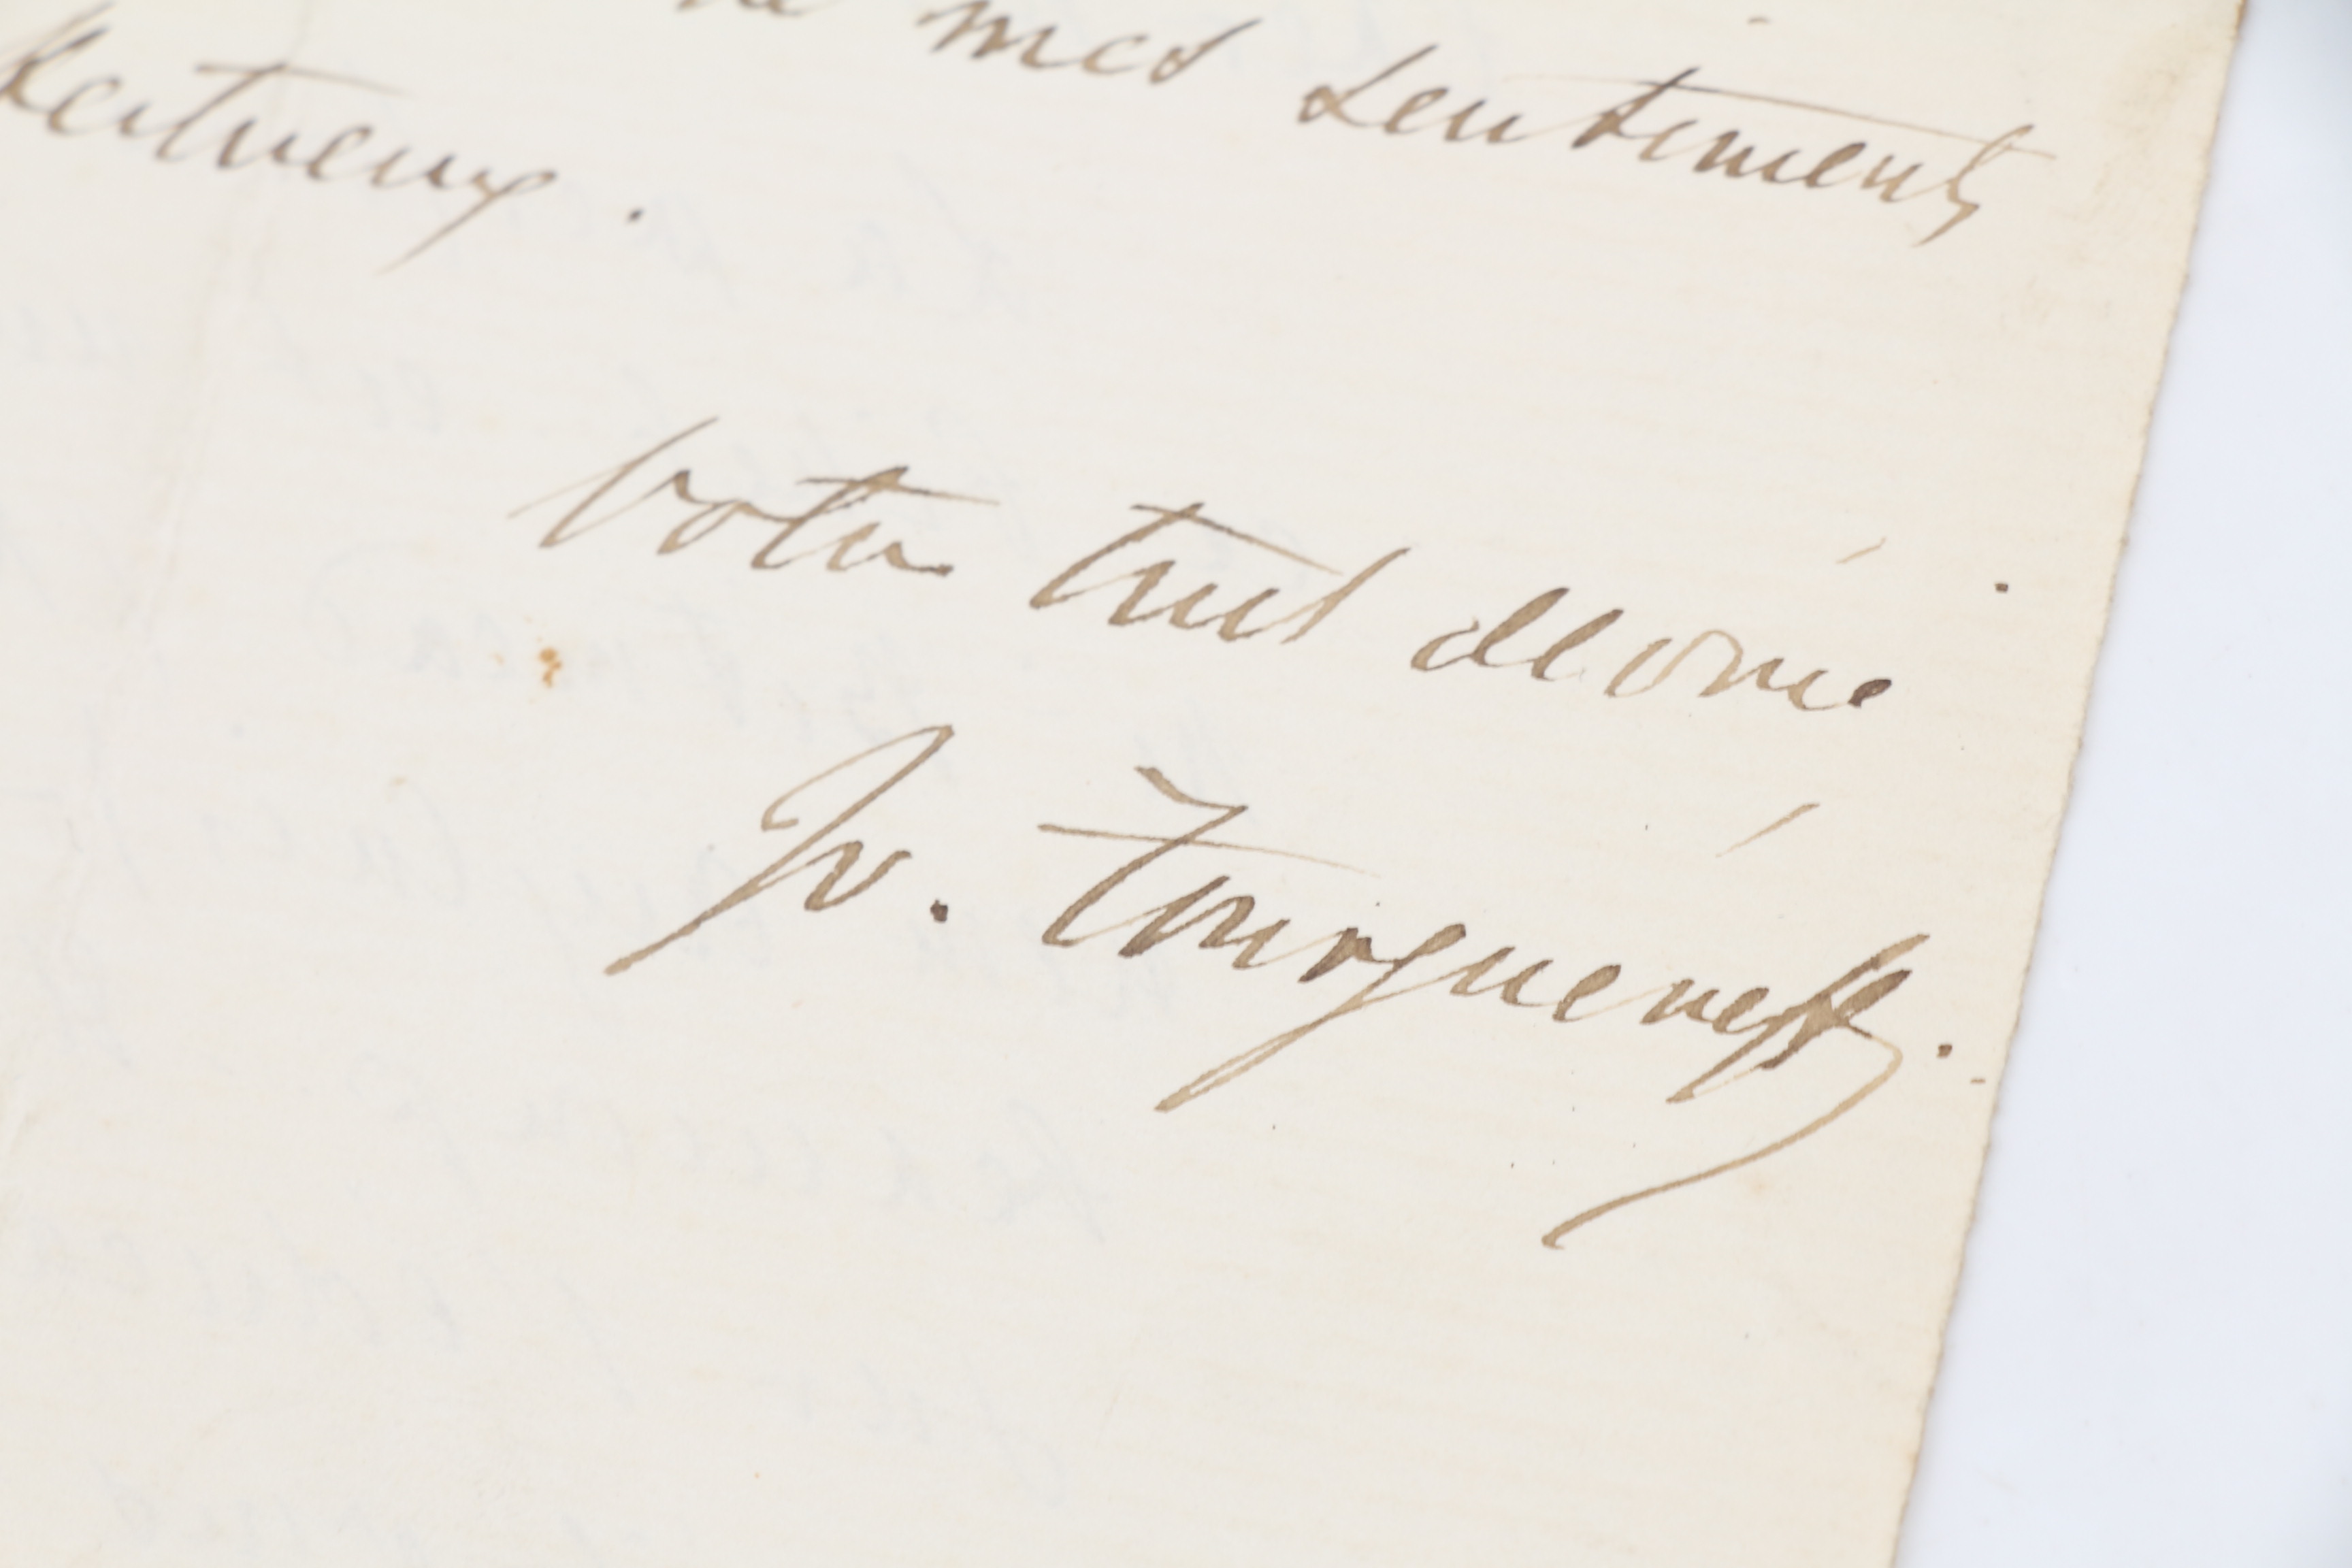 mes sentiments
ectueux.
Votre tout dévoué
Iv. Tourguéneff.